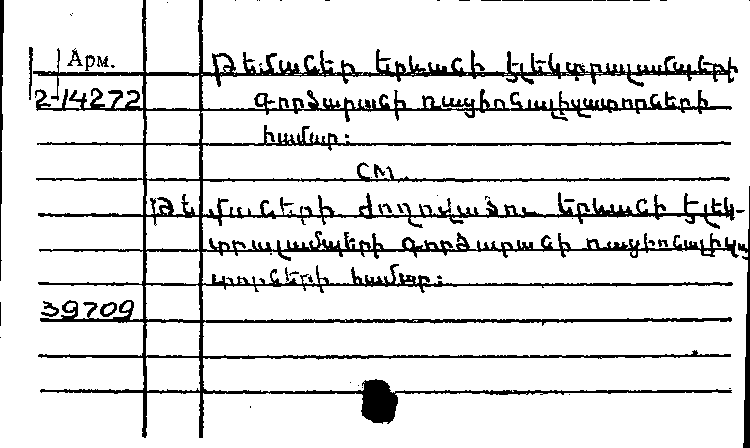 Арм.
Թեմաներ Երևանի էլեկտրալամպերի
2-14272
գործարանի ռացիոնալիզատորների
համար:
См.
Թեմաների ժողովածու Երևանի էլեկ-
տրալամպերի գործարանի ռացիոնալիզա
տորների համար:
39709